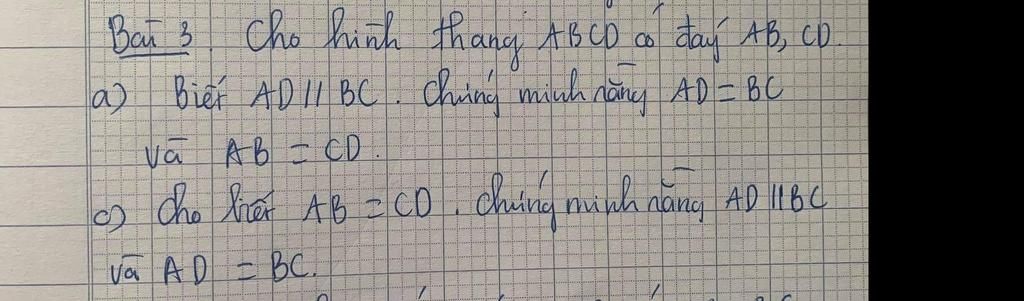 Bài 3. Cho hình thang ABCD có đáy AB, CD.
a) Biết AD // BC. Chứng minh rằng AD = BC
và AB = CD.
c) Cho biết AB = CD. Chứng minh rằng AD // BC
và AD = BC.